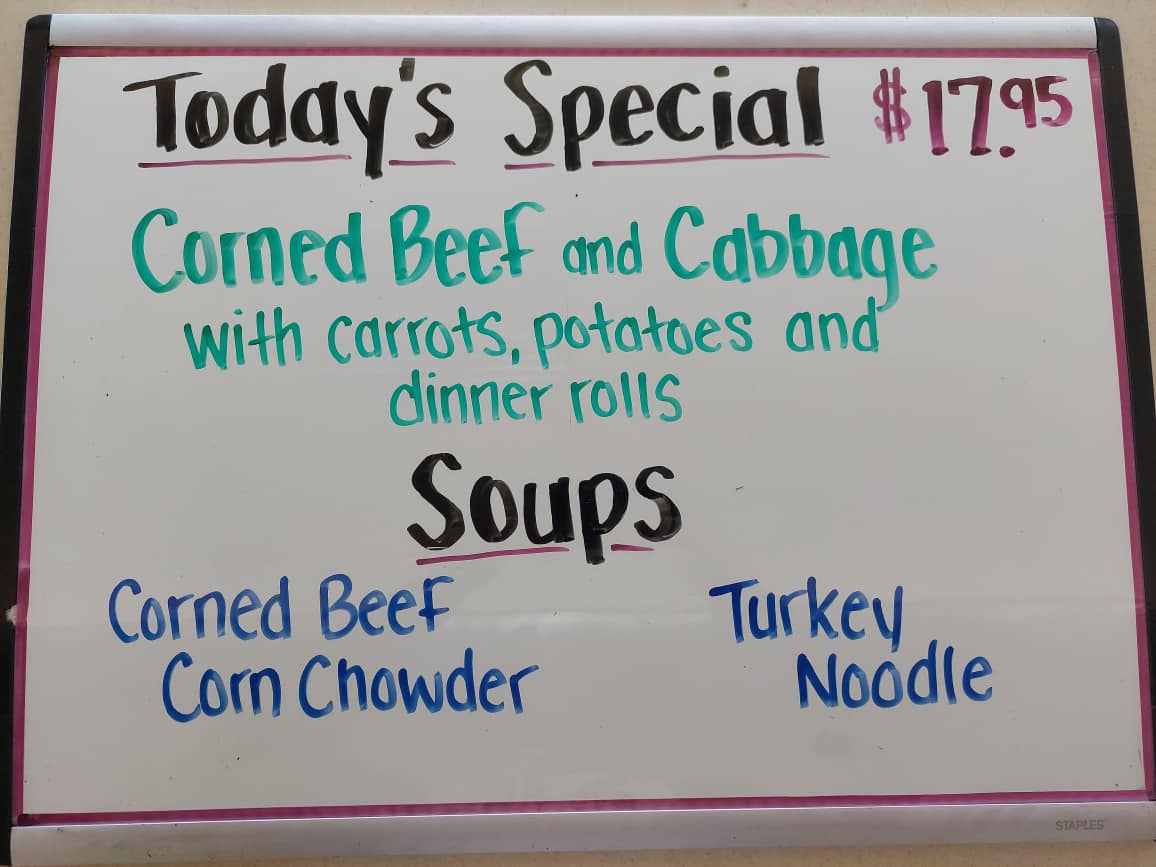 Today's Special $17.95
Corned Beef and Cabbage
with carrots, potatoes and
dinner rolls
Soups
Corned Beef
Corn Chowder
Turkey
Noodle
STAPLES